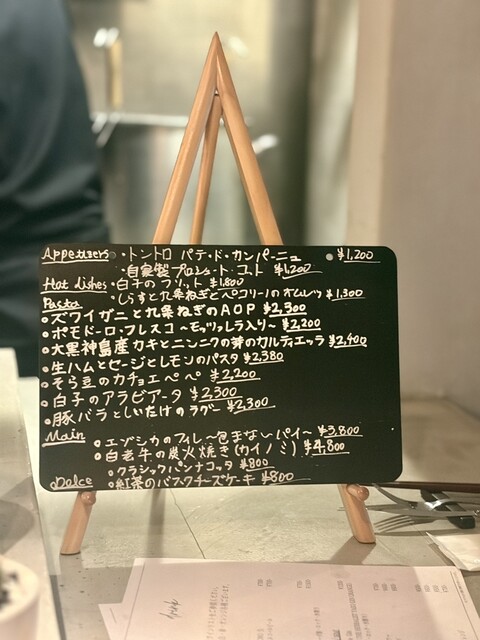 Appetizers ・トントロ パテ・ド・カンパーニュ ¥1,200
・自家製プロシュート・コット ¥1,200
Hot dishes ・白子のフリット ¥1,800
・しらすと九条ねぎとペコリーノのオムレツ ¥1,300
Pasta
・ズワイガニと九条ねぎのAOP ¥2,300
・ポモドーロ・フレスコ ~モッツァレラ入り~ ¥2,200
・大黒神島産カキとニンニクの芽のカルティエッラ ¥2,400
・生ハムとセージとレモンのパスタ ¥2,380
・そら豆のカチョエペペ ¥2,200
・白子のアラビアータ ¥2,300
・豚バラとしいたけのラグー ¥2,300
Main ・エゾシカのフィレ~包まないパイ~ ¥3,800
・白老牛の炭火焼き(カイノミ) ¥4,800
・クラシックパンナコッタ ¥800
Dolce ・紅茶のバスクチーズケーキ ¥800